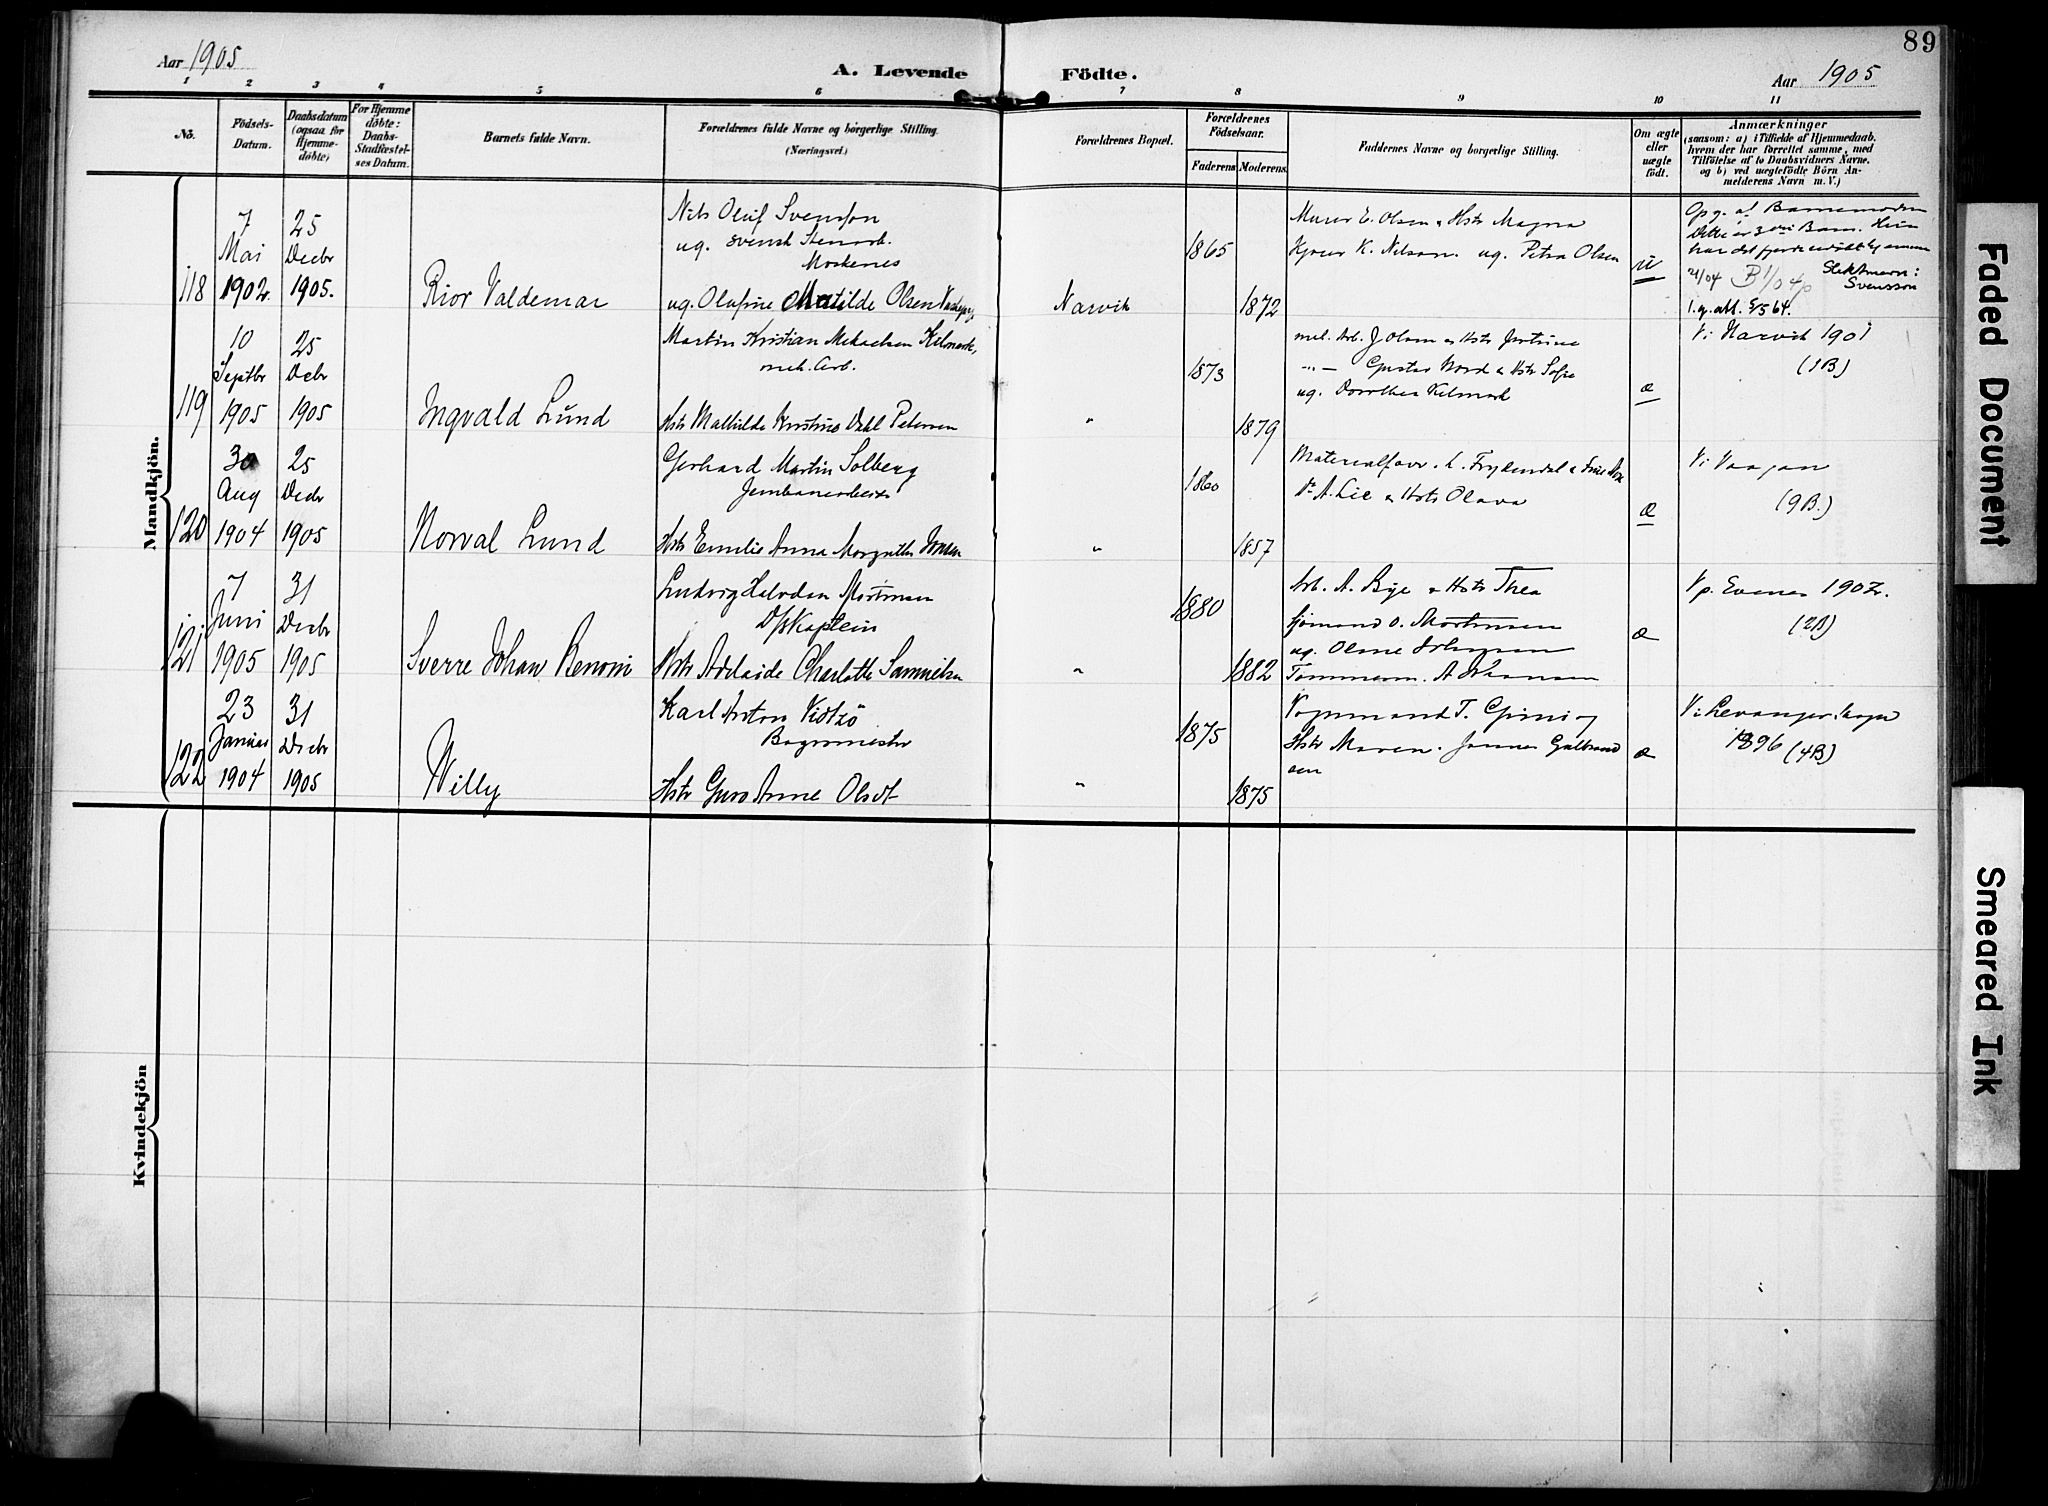 89
Aar 1905
A. Levende Födte.
Aar 1905
1 2 3 4 5 6 7 8 9 10 11
No.
Födsels-
Datum.
Daabsdatum
(ogsaa for
Hjemme-
döbte)
For Hjemme
döbte:
Daabs-
Stadfæstel-
ses Datum.
Barnets fulde Navn.
Forældrenes fulde Navne og borgerlige Stilling.
(Næringsvei.)
Forældrenes Bopæl.
Forældrenes
Födselsaar.
Faderens Moderens.
Faddernes Navne og borgerlige Stilling.
Om ægte
eller
uægte
födt.
Anmærkninger
(saasom: a) i Tilfælde af Hjemmedaab.
hvem der har forrettet samme, med
Tilföielse af to Daabsvidners Navne.
og b) ved uægtefödte Börn An-
melderens Navn m. V.)
Mandkjön.
118
7
Mai
1902.
25
Decbr
1905.
Rior Valdemar
Nils Oluf Svensson
ug. svensk Stenarb.
Moskenes
ug. Olufine Matilde Olsen
Narvik
1865
1872
Murer E. Olsen & Hstr Magna
K. Nilsen. ug. Petra Olsen
u
Opg. af Barnemoderen
Dette er 3die Barn. Hun
har det
21/04 B 1/04 Slektsnavn:
Svensson
l.g.att. 8/5 64.
119
10
Septbr
1905
25
Debr
1905
Ingvald Lund
Martin Kristian Mikaelsen Kelmark,
mek. Arb.
Hstr Mathilde Kristine Dahl Petersen
"
1873
1879
mek. Arb. J Olsen & Hstr Justine
" — Gustav Nord & Hstr Sofie
ug. Dorothea Kelmark
æ
Vi Narvik 1901
(1B)
120
30
Aug
1904
25
Decbr
1905
Norval Lund
Gerhard Martin Solberg
Jernbanearbeider
Hstr Emilie Anna Margrethe Jensen
"
1860
1857
Materialforv. L. Frydendal & Frue
A. Lie & Hstr Olava
æ
Vi Vaagan
(9B.)
121
7
Juni
1905
31
Decbr
1905
Sverre Johan Benoni
Ludvig Halvdan Mortensen
D/S Kaptein
Hstr Adelaide Charlotte Samuelsen
"
1880
1882
Arb. A. Bye & Hstr Thea
Sjømand O. Mortensen
ug. Oline Johansen
Tømmerm. A Johansen
æ
Vp. Evenes 1902.
(2B)
122
23
Januar
1904
31
Decbr
1905
Willy
Karl Anton Vidtsö
Bagermester
Hstr Guro Anne Olsdt
"
1875
1875
Vognmand T. Grini og
Hstr Maren. Jomar Gulbrand
sen
æ
Vi Levanger
1896 (4B)
Kvindekjön
Faded Document
Smeared Ink